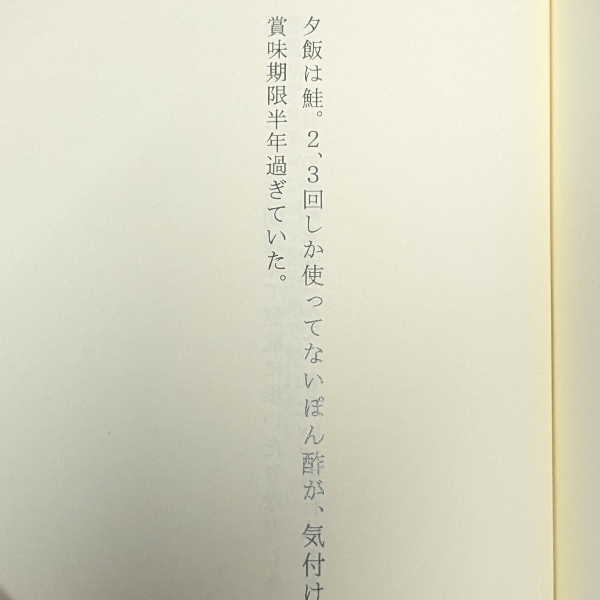 夕飯は鮭。2、3回しか使ってないぽん酢が、気付け
賞味期限半年過ぎていた。